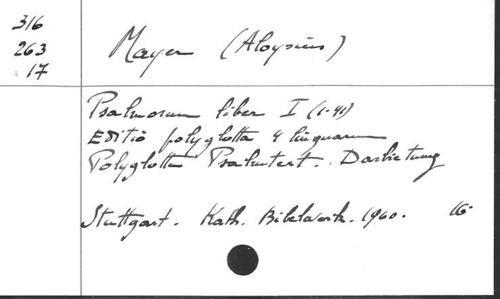 316
263
17
Mayer (Aloysius)
Psalmorum liber I (1-41)
Editio polyglotta 4 linguarum
Polyglotta Psalmtext. Darbietung
Stuttgart. Kath. Bibelwerk. 1960. 16°